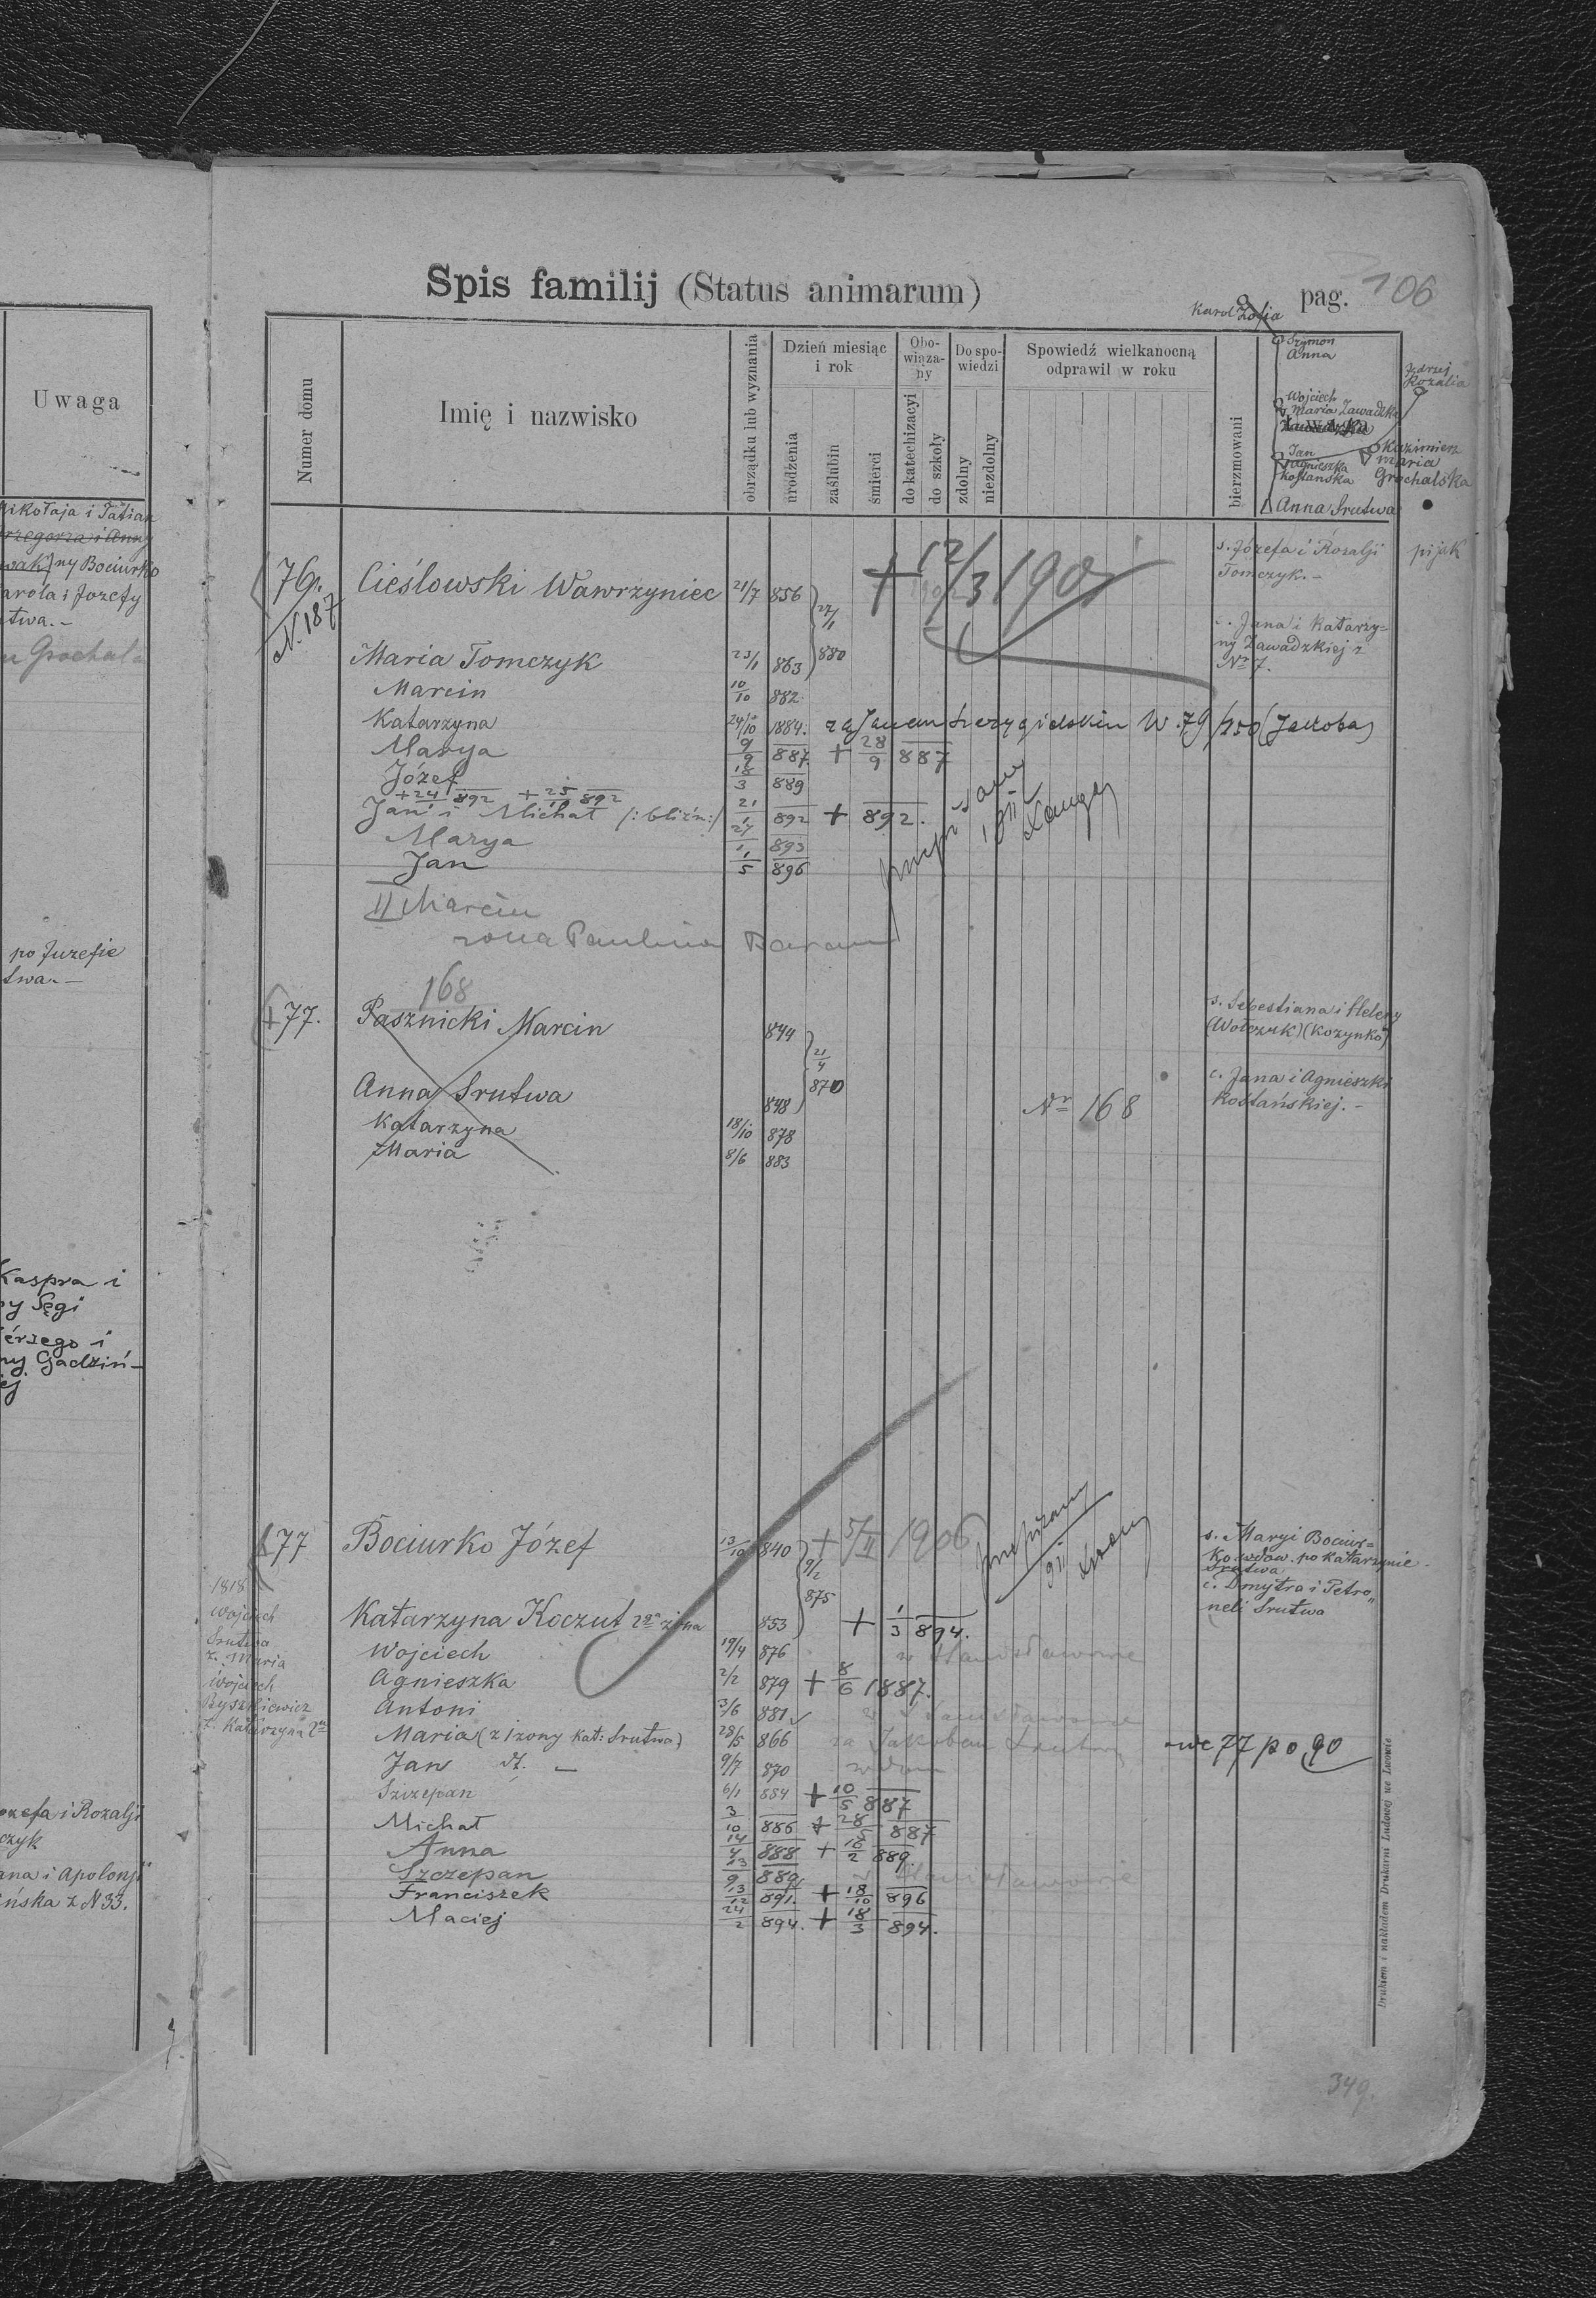 Uwaga
Mikołaja i Tatian
Grzegorza i Anny
ny Bociurko
Karóla i Jozefy
twa.-
Grochal
po Juzefie
twa.-
Kaspra i
Sęgi
i
Gadziń-
ej
Jozefa i Rozalji
czyk
ana i Apolonji
ińska z N 33.
Spis familij (Status animarum)
pag. 106
Karol Zofia
Szymon
Anna
z drugi
Rozalia
Wojciech
Maria Zawadzka
Jan
Agnieszka
Kostanska
Kazimierz
Maria
Grochalska
Anna Srutwa
Numer domu
Imię i nazwisko
obrządku lub wyznania
Dzień miesiąc i rok
urodzenia
zaślubin
śmierci
Obowiązany
do katechizacyi
do szkoły
Do spowiedzi
zdolny
niezdolny
Spowiedź wielkanocną odprawił w roku
bierzmowani
76.
N. 187
Cieślowski Wawrzyniec 21/7 856
22/1 880
+ 12/3 190
s. Józefa i Rozalji
Tomczyk.-
pijak
Maria Tomczyk 23/1 863
c. Jana i Katarzy=
ny Zawadzkiej z
Nr 7.
Marcin 10/10 882
Katarzyna 24/10 1884. za Janem W. 79/250 (Jakoba)
Marya 9/9 887 + 28/9 887
Józef 18/3 889
+ 24/1 892 + 25/1 892
Jan i Michał /: bliźn:/ 21/1 892 + 892.
Marya 27/1 893
Jan 1/5 896
II Marcin
żona Paulina Baran
168
77. Pasznicki Marcin 844
21/4 870
s. Sebestiana i Heleny
(Wołczuk) (Kozynko)
Anna Srutwa 848
Nr 168
c. Jana i Agnieszki
Kostańskiej.-
Katarzyna 18/10 878
Maria 8/6 883
77 Bociurko Józef 13/10 840
9/2 875
+ 5/II 1906
s. Maryi Bociur=
ko wdow. po Katarzynie
Srutwa
Katarzyna Koczut 2ga żona 853 + 1/3 894.
c. Dmytra i Petro„
neli Srutwa
1818
Wojciech
Srutwa
z. Maria
Wojciech
Ryszkiewicz
ż. Katarzyna 2ga
Wojciech 19/4 876 w Stanisławowie
Agnieszka 2/2 879 + 8/6 1887.
Antoni 3/6 881 w Stanisławowie
Maria (z 1 zony Kat: Srutwa) 28/5 866 za Jakobem Srutwą we 77 po 90
Jan dt. — 9/7 870
Szczepan 6/1 884 + 10/5 887
Michał 3/10 886 + 28/5 887
Anna 14/7 888 + 18/2 889
Szczepan 23/9 889 w Stanisławowie
Franciszek 13/12 891. + 18/10 896
Maciej 24/2 894. + 18/3 894.
Drukiem i nakładem Drukarni Ludowej we Lwowie
349.